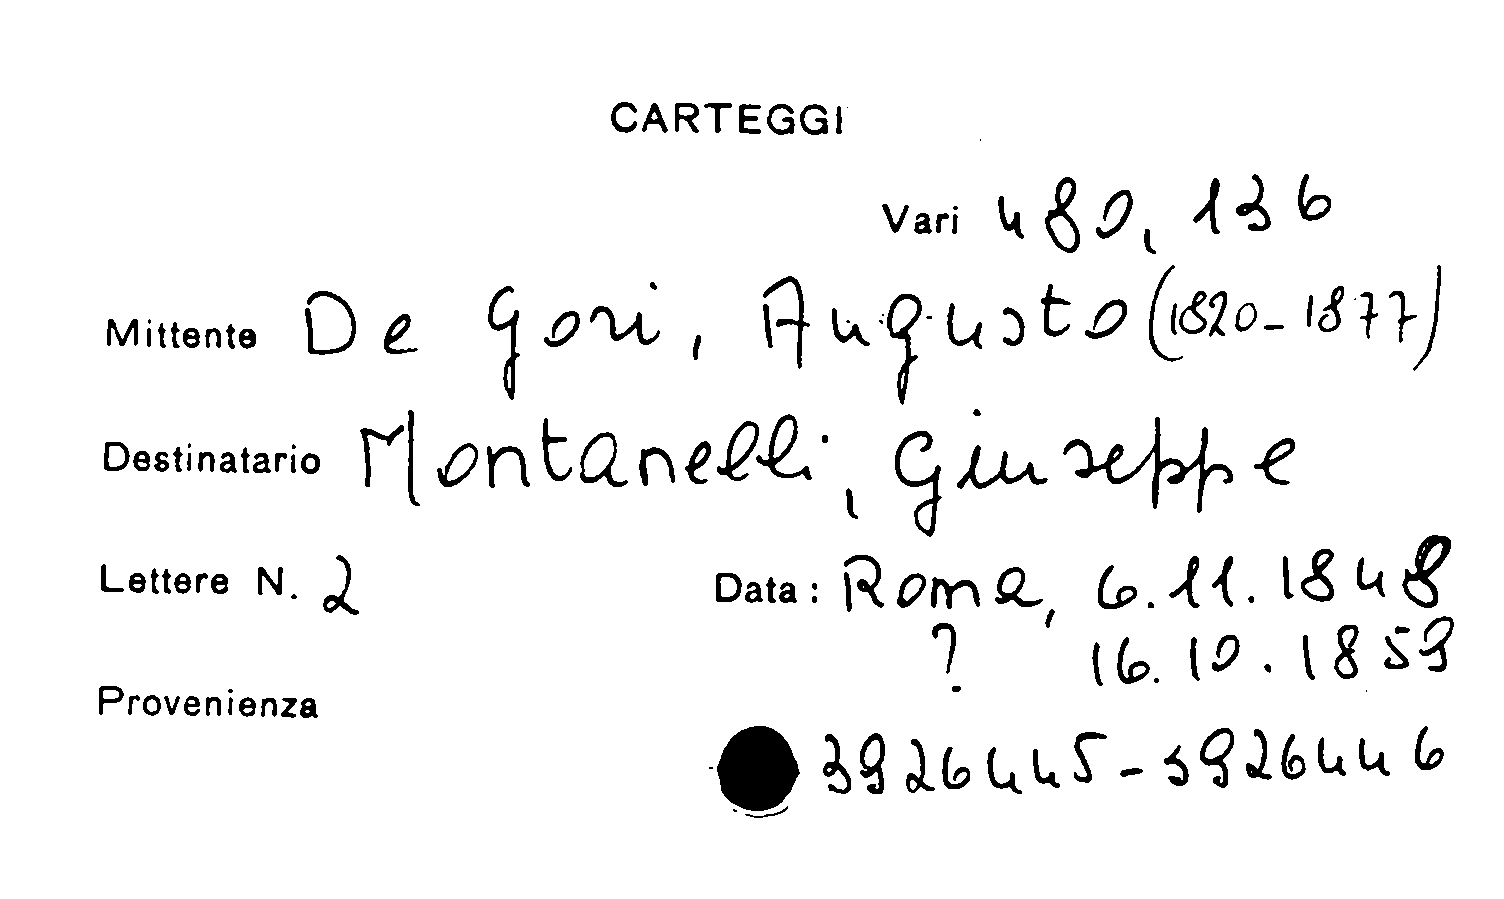 CARTEGGI
Vari 480, 136
Mittente De Gori, Augusto (1820-1877)
Destinatario Montanelli, Giuseppe
Lettere N. 2 Data: Roma, 6.11.1848
? 16.10.1859
Provenienza
3926445-3926446